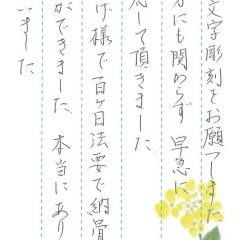 文字彫刻をお願いしました
にも関わらず 早急に
して頂きました。
げ様で百ヶ日法要で納骨
ができました。本当にあり
いました。